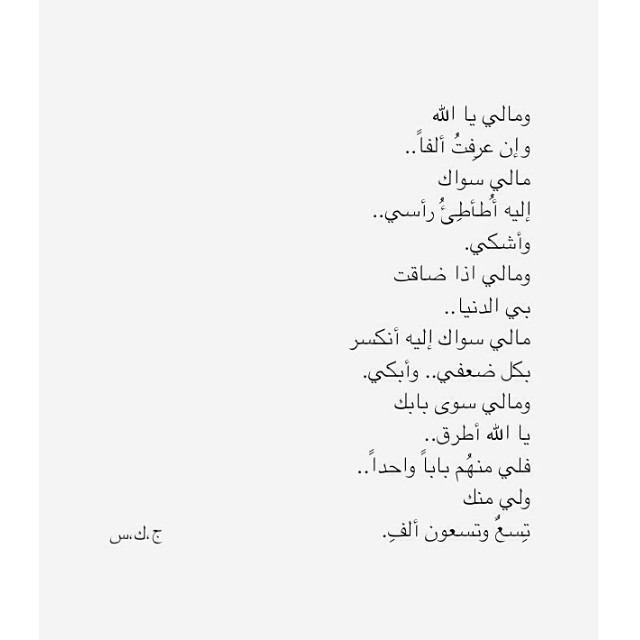 ومالي يا الله
وإن عرِفتُ ألفاً..
مالي سواك
إليه أُطأطِئُ رأسي..
وأشكي.
ومالي اذا ضاقت
بي الدنيا..
مالي سواك إليه أنكسر
بكل ضعفي.. وأبكي.
ومالي سوى بابك
يا الله أطرق..
فلي منهُم باباً واحداً..
ولي منك
تِسعٌ وتسعون ألفِ.
ج،ك،س